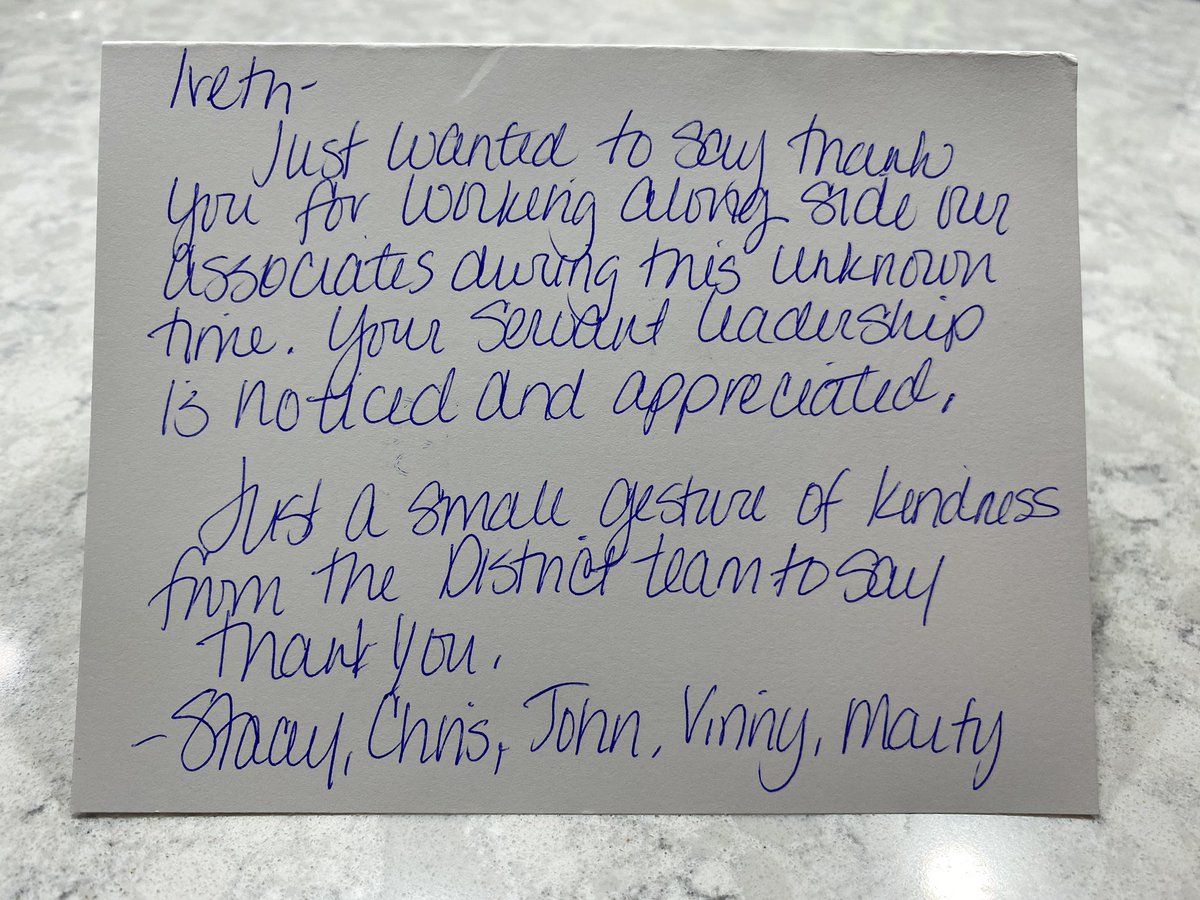 Ireth-
Just wanted to say thank
you for working along side our
associates during this unknown
time. Your Servant leadership
is noticed and appreciated.
Just a small gesture of kindness
from the District team to say
thank you.
- Stacey, Chris, John, Vinny, Marty